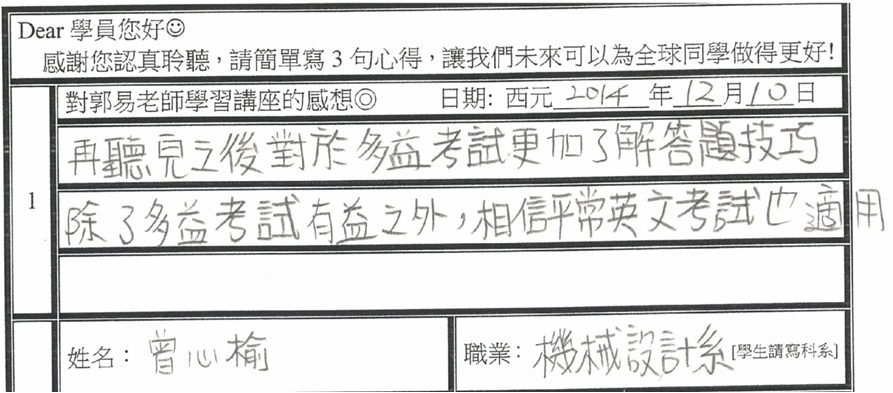 Dear 學員您好☺
感謝您認真聆聽，請簡單寫 3 句心得，讓我們未來可以為全球同學做得更好!
對郭易老師學習講座的感想◎ 日期: 西元 2014 年 12 月 10 日
1
再聽見之後對於多益考試更加了解答題技巧
除了多益考試有益之外，相信平常英文考試也適用
姓名：曾心榆 職業：機械設計系 [學生請寫科系]